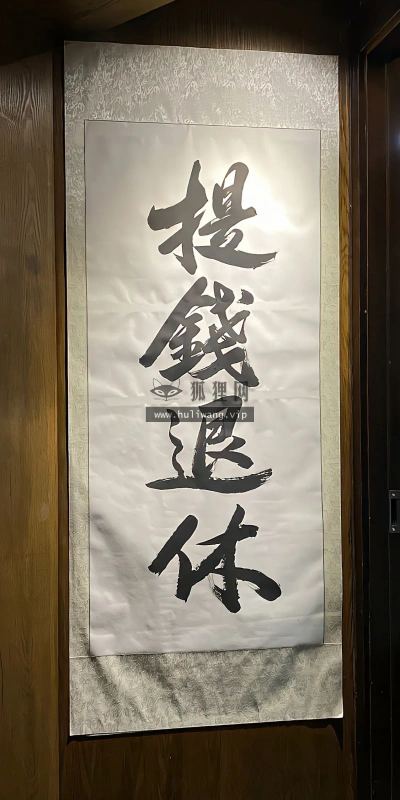 提錢退休
狐狸网
www.huliwang.vip